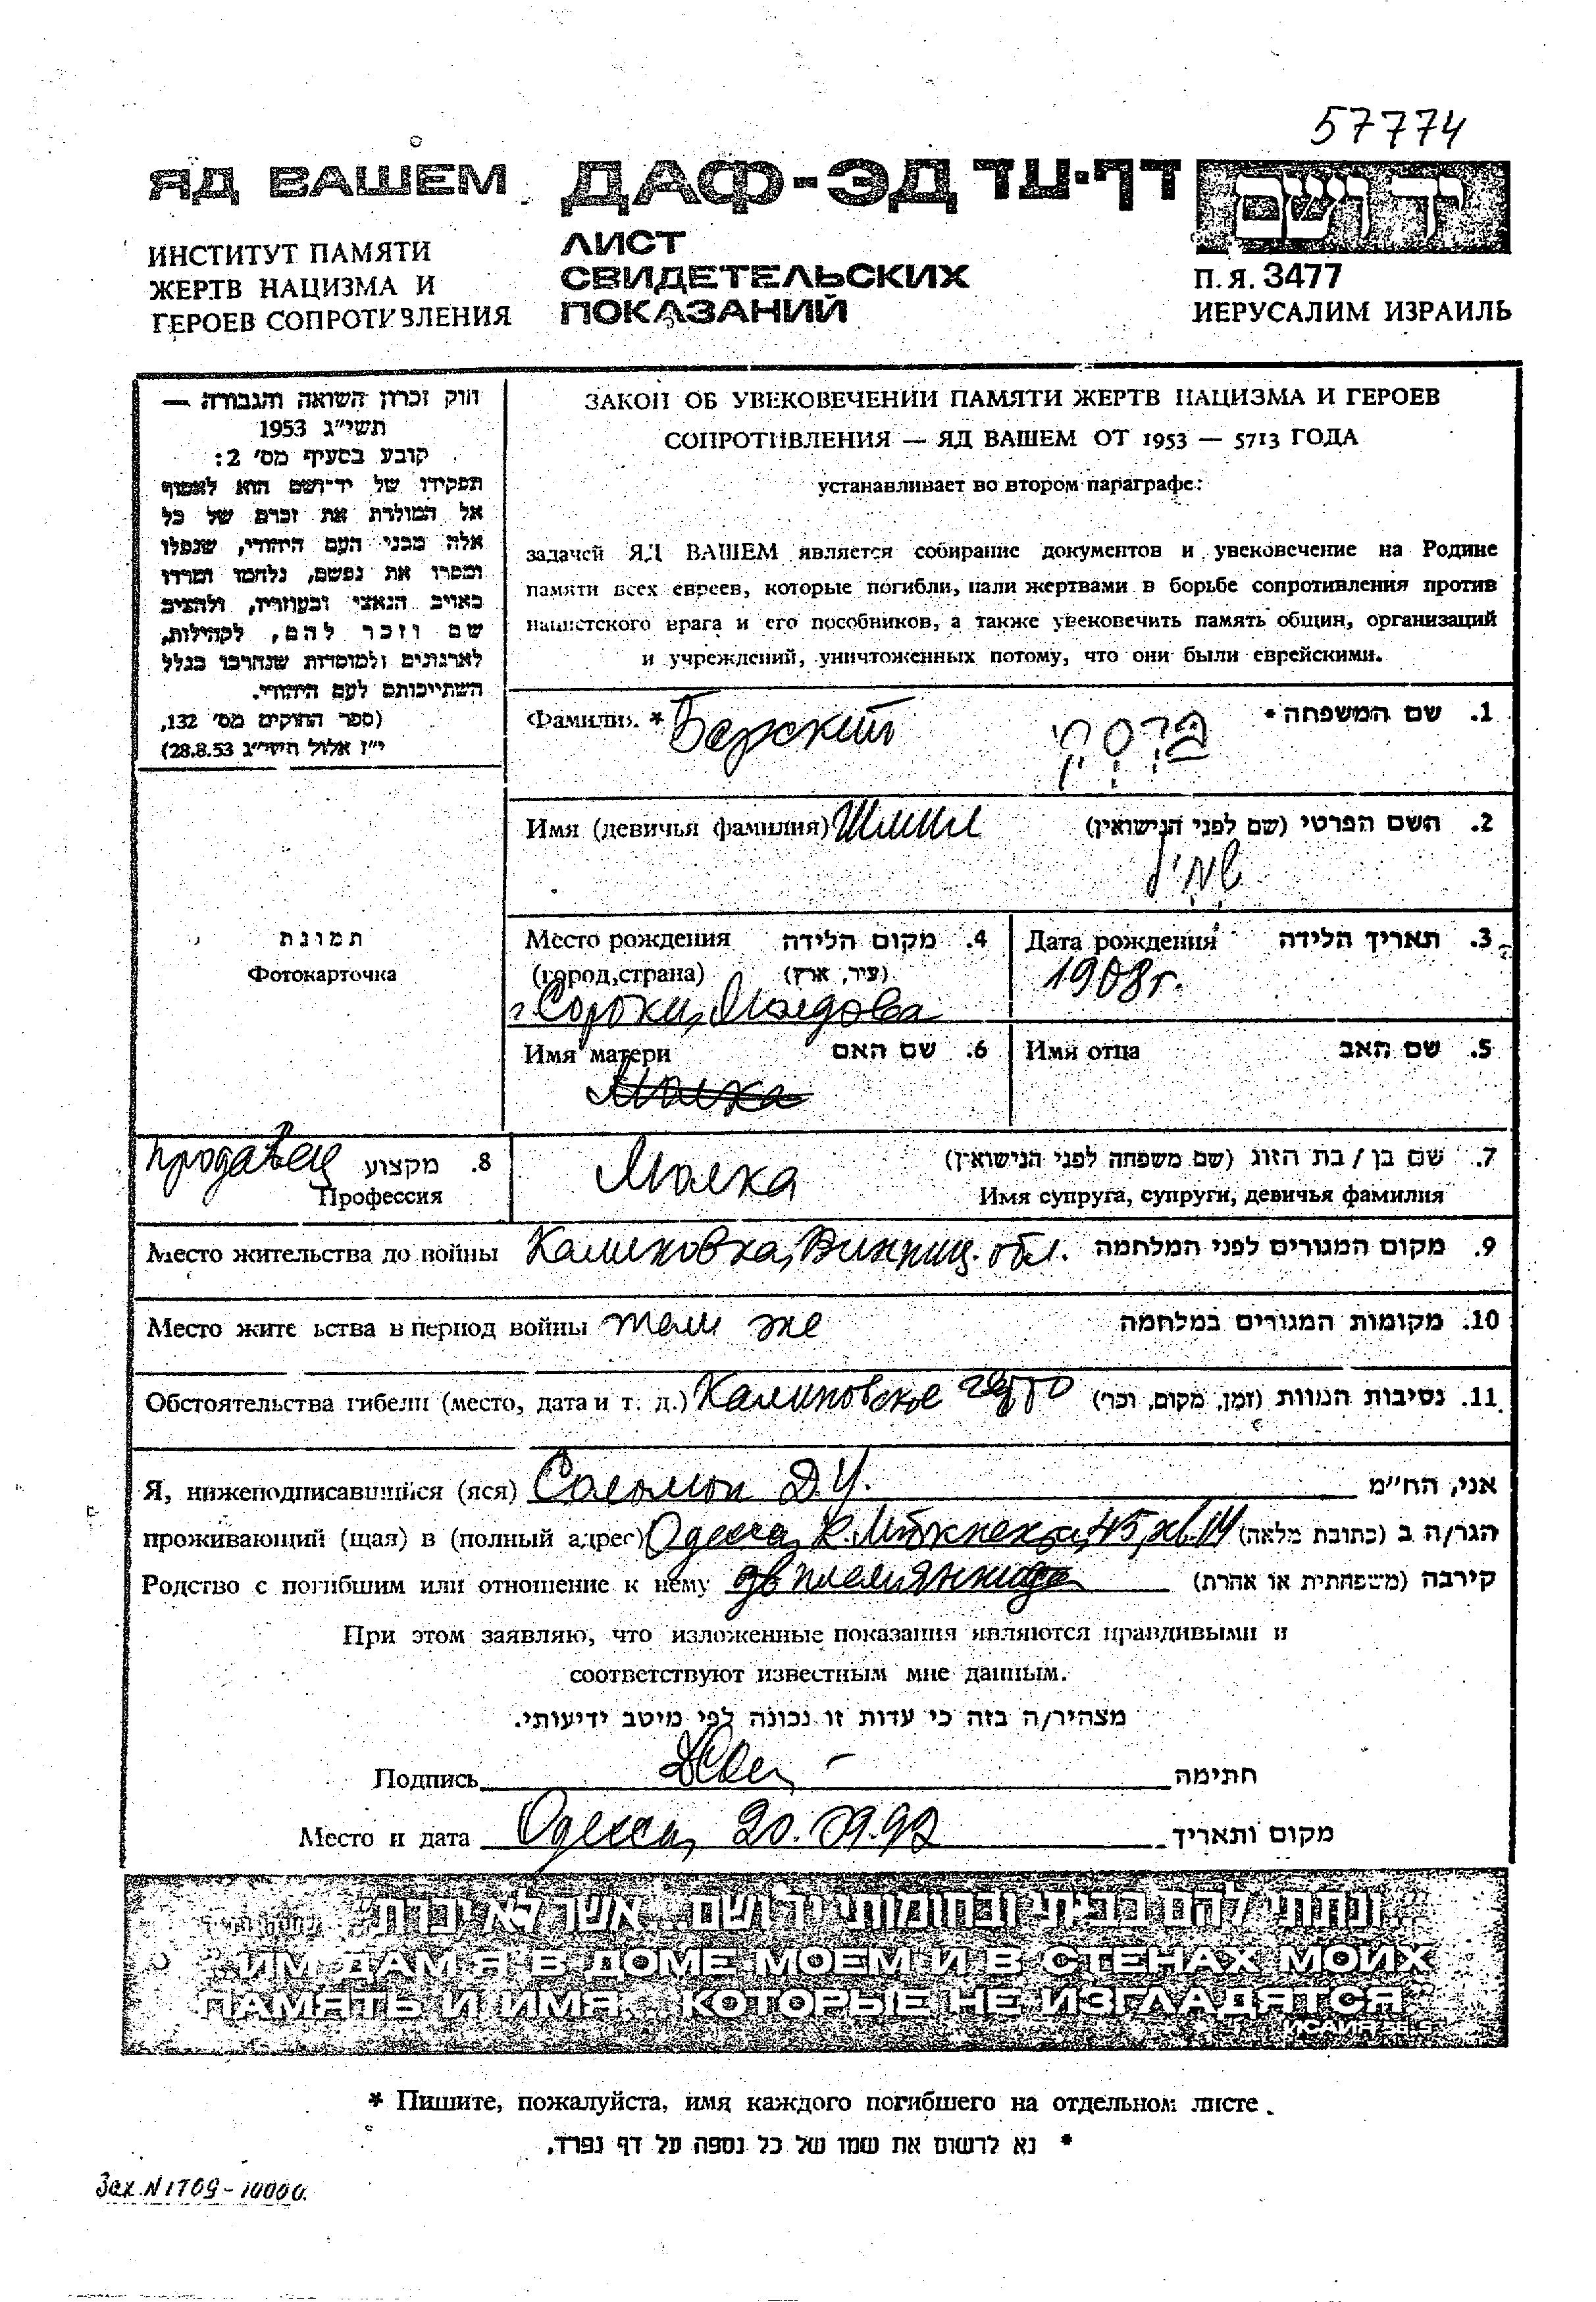 57774
ЯД ВАШЕМ ДАФ-ЭД דף-עד יד ושם
ИНСТИТУТ ПАМЯТИ
ЖЕРТВ НАЦИЗМА И
ГЕРОЕВ СОПРОТИВЛЕНИЯ
ЛИСТ
СВИДЕТЕЛЬСКИХ
ПОКАЗАНИЙ
П.Я. 3477
ИЕРУСАЛИМ ИЗРАИЛЬ
חוק זכרון השואה והגבורה —
תשי"ג 1953
קובע בסעיף מס' 2:
תפקידו של יד-ושם הוא לאסוף
אל המולדת את זכרם של כל
אלה מבני העם היהודי, שנפלו
ומסרו את נפשם, נלחמו ומרדו
באויב הנאצי ובעוזריו, ולהציב
שם וזכר להם, לקהילות,
לארגונים ולמוסדות שנחרבו בגלל
השתייכותם לעם היהודי.
(ספר החוקים מס' 132,
י"ז אלול תשי"ג 28.8.53)
ЗАКОН ОБ УВЕКОВЕЧЕНИИ ПАМЯТИ ЖЕРТВ НАЦИЗМА И ГЕРОЕВ
СОПРОТИВЛЕНИЯ — ЯД ВАШЕМ ОТ 1953 — 5713 ГОДА
устанавливает во втором параграфе:
задачей ЯД ВАШЕМ является собирание документов и увековечение на Родине
памяти всех евреев, которые погибли, пали жертвами в борьбе сопротивления против
нацистского врага и его пособников, а также увековечить память общин, организаций
и учреждений, уничтоженных потому, что они были еврейскими.
Фамилия * Барский ברסקי 1. שם המשפחה *
Имя (девичья фамилия) Шмил 2. השם הפרטי (שם לפני הנישואין)
שמיל
תמונת
Фотокарточка
Место рождения 4. מקום הלידה
(город,страна) (עיר, ארץ)
г. Сороки, Молдова
Дата рождения 3. תאריך הלידה
1908г.
Имя матери 6. שם האם
Малка
Имя отца 5. שם האב
продавец 8. מקצוע
Профессия
Малка 7. שם בן / בת הזוג (שם משפחה לפני הנישואין)
Имя супруга, супруги, девичья фамилия
Место жительства до войны Калиновка, Винниц. обл. 9. מקום המגורים לפני המלחמה
Место жите ьства в период войны там же 10. מקומות המגורים במלחמה
Обстоятельства гибели (место, дата и т. д.) Калиновское гетто 11. נסיבות המוות (זמן, מקום, וכו')
Я, нижеподписавшийся (яся) Саломон Д.У. אני, הח"מ
проживающий (щая) в (полный адрес) Одесса, 45, кв.14 הגר/ה ב (כתובת מלאה)
Родство с погибшим или отношение к нему дв племянница קירבה (משפחתית או אחרת)
При этом заявляю, что изложенные показания являются правдивыми и
соответствуют известным мне данным.
מצהיר/ה בזה כי עדות זו נכונה לפי מיטב ידיעותי.
Подпись חתימה
Место и дата Одесса, 20.09.92 מקום ותאריך
"ונתתי להם בביתי ובחומותי יד ושם... אשר לא יכרת" ישעיה
"...ИМ ДАМ Я В ДОМЕ МОЕМ И В СТЕНАХ МОИХ
ПАМЯТЬ И ИМЯ... КОТОРЫЕ НЕ ИЗГЛАДЯТСЯ"
ИСАИЯ
* Пишите, пожалуйста, имя каждого погибшего на отдельном листе.
* נא לרשום את שמו של כל נספה על דף נפרד.
Зак. N 1709 - 10000.